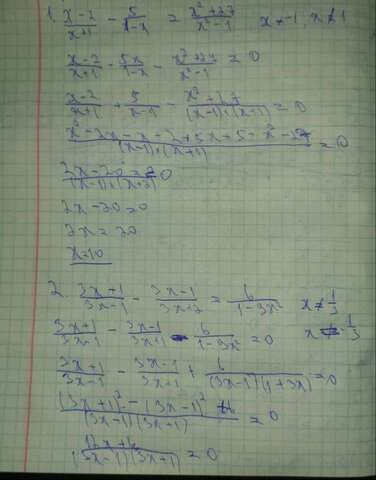 1. x-2/x+1 - 5/1-x = x²+27/x²-1 x≠-1, x≠1
x-2/x+1 - 5x/1-x - x²+27/x²-1 = 0
x-2/x+1 + 5/x-1 - x²+27/(x-1)·(x+1) = 0
x²-2x-x+2+5x+5-x²-27/(x-1)·(x+1) = 0
2x-20/(x-1)·(x+1) = 0
2x-20=0
2x=20
x=10
2. 3x+1/3x-1 - 3x-1/3x+1 = 6/1-3x² x≠1/3
3x+1/3x-1 - 3x-1/3x+1 - 6/1-3x² = 0 x≠-1/3
3x+1/3x-1 - 3x-1/3x+1 + 6/(3x-1)(1+3x) = 0
(3x+1)²-(3x-1)²+6/(3x-1)(3x+1) = 0
12x+6/(3x-1)(3x+1) = 0